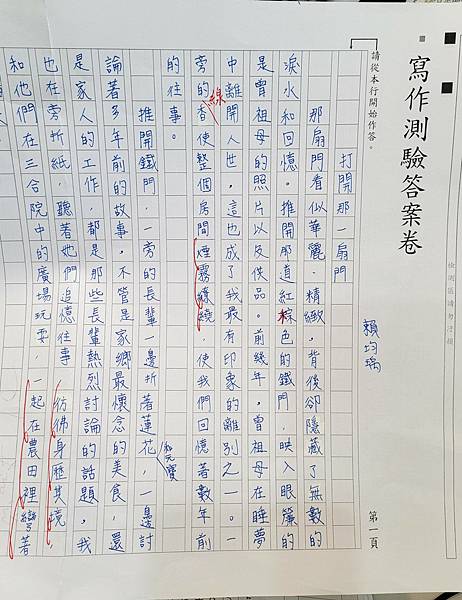 寫作測驗答案卷
檢測區請勿汙損
請從本行開始作答。
第一頁
打開那一扇門
賴均瑀
那扇門看似華麗、精緻,背後卻隱藏了無數的
淚水和回憶。推開那道紅棕色的鐵門,映入眼簾的
是曾祖母的照片以及供品。前幾年,曾祖母在睡夢
中離開人世,這也成了我最有印象的離別之一。一
旁的香使整個房間煙霧繚繞,使我們回憶著數年前
線
的往事。
推開鐵門,一旁的長輩一邊折著蓮花,一邊討
和元寶
論著多年前的故事,不管是家鄉最懷念的美食,還
是家人的工作,都是那些長輩熱烈討論的話題,我
也在旁折紙,聽著她們追憶往事,彷彿身歷其境,
和他們在三合院中的廣場玩耍,一起在農田裡彎著